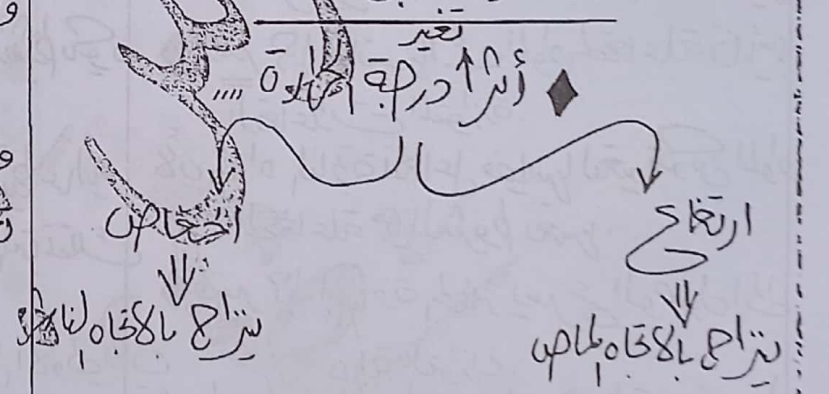 تغير
أثر درجة الحرارة ,,,,
ارتفاع
انخفاض
ينزاح بالاتجاه الماص
ينزاح بالاتجاه الناشر